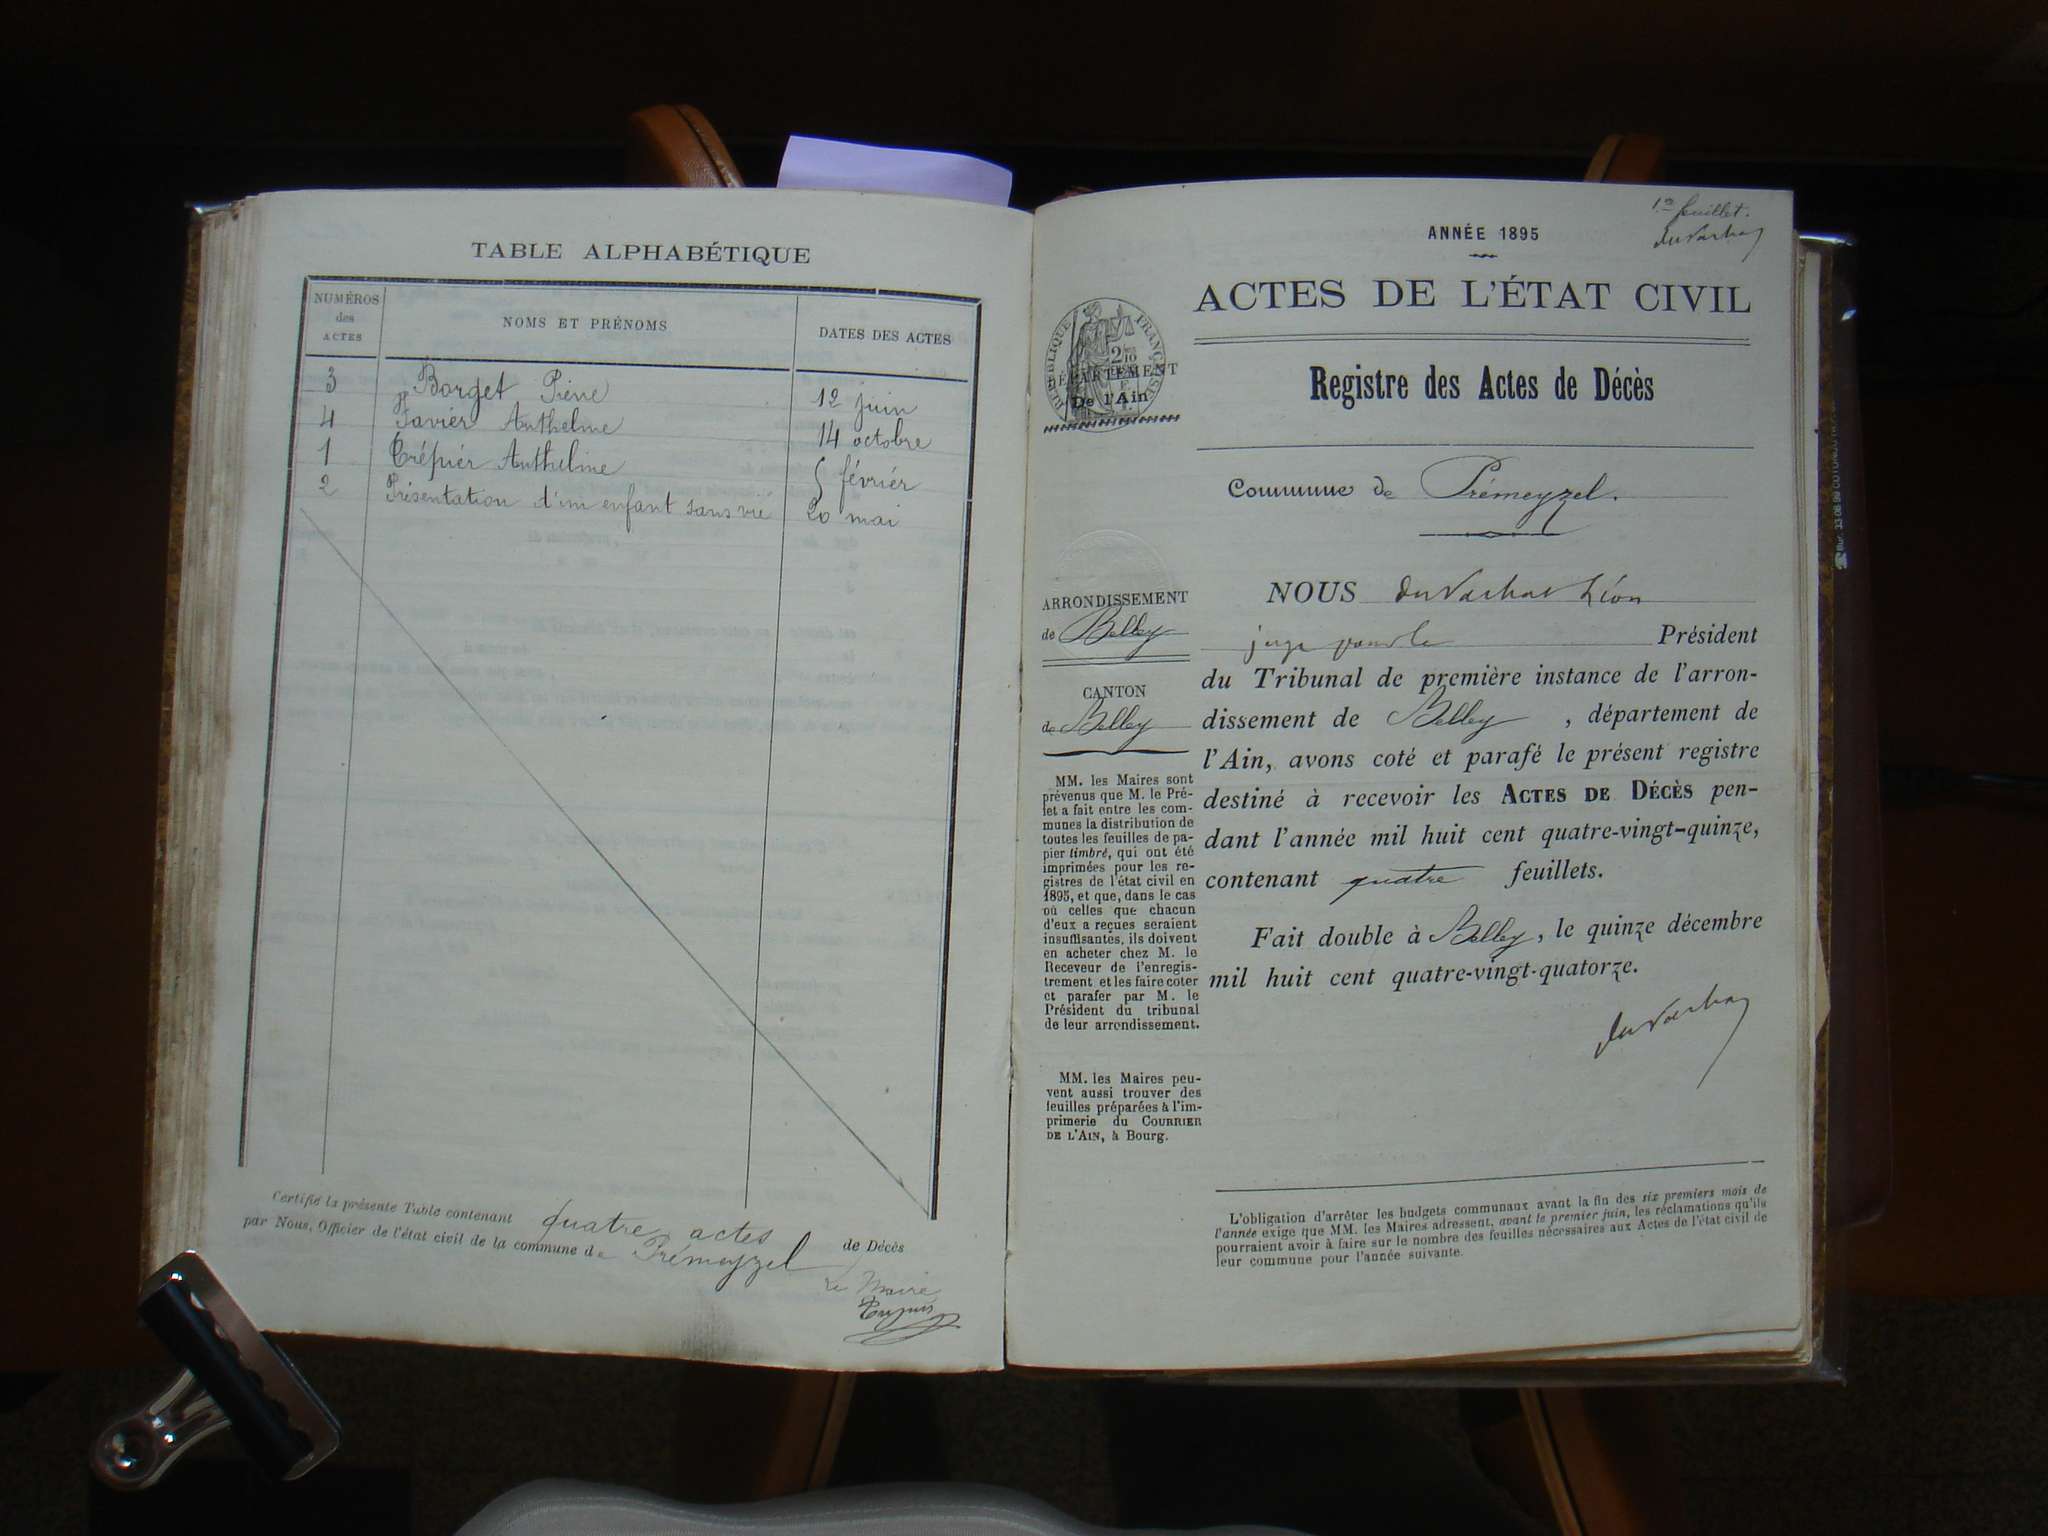 TABLE ALPHABÉTIQUE
NUMÉROS des ACTES
NOMS ET PRÉNOMS
DATES DES ACTES
3 Borget Pierre 12 juin
4 Javier Anthelme 14 octobre
1 Crépier Antheline 5 février
2 Présentation d'un enfant sans vie 20 mai
Certifié la présente Table contenant quatre actes de Décès
par Nous, Officier de l'état civil de la commune de Prémeyzel
Le Maire,
1er feuillet.
ANNÉE 1895
ACTES DE L'ÉTAT CIVIL
RÉPUBLIQUE FRANÇAISE
DÉPARTEMENT
De l'Ain
Registre des Actes de Décès
Commune de Prémeyzel.
ARRONDISSEMENT
de Belley
CANTON
de Belley
MM. les Maires sont
prévenus que M. le Pré-
fet a fait entre les com-
munes la distribution de
toutes les feuilles de pa-
pier timbré, qui ont été
imprimées pour les re-
gistres de l'état civil en
1895, et que, dans le cas
où celles que chacun
d'eux a reçues seraient
insuffisantes, ils doivent
en acheter chez M. le
Receveur de l'enregis-
trement et les faire coter
et parafer par M. le
Président du tribunal
de leur arrondissement.
MM. les Maires peu-
vent aussi trouver des
feuilles préparées à l'im-
primerie du COURRIER
DE L'AIN, à Bourg.
NOUS Léon
juge pour le Président
du Tribunal de première instance de l'arron-
dissement de Belley, département de
l'Ain, avons coté et parafé le présent registre
destiné à recevoir les ACTES DE DÉCÈS pen-
dant l'année mil huit cent quatre-vingt-quinze,
contenant quatre feuillets.
Fait double à Belley, le quinze décembre
mil huit cent quatre-vingt-quatorze.
L'obligation d'arrêter les budgets communaux avant la fin des six premiers mois de
l'année exige que MM. les Maires adressent, avant le premier juin, les réclamations qu'ils
pourraient avoir à faire sur le nombre des feuilles nécessaires aux Actes de l'état civil de
leur commune pour l'année suivante.